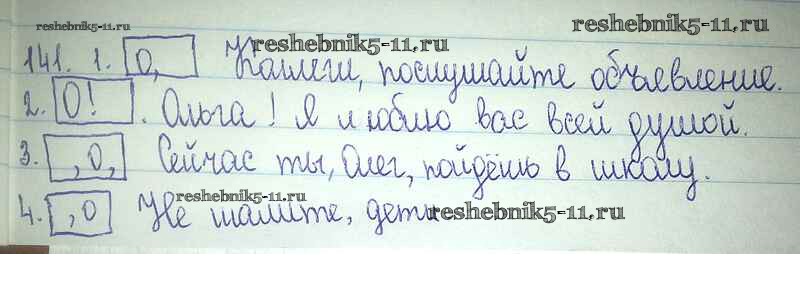 reshebnik5-11.ru reshebnik5-11.ru
141. 1. О, Коллеги, послушайте объявление.
reshebnik5-11.ru
2. О! . Ольга! Я люблю вас всей душой.
3. , о, Сейчас ты, Олег, пойдёшь в школу.
reshebnik5-11.ru
4. , о Не шалите, дети
reshebnik5-11.ru